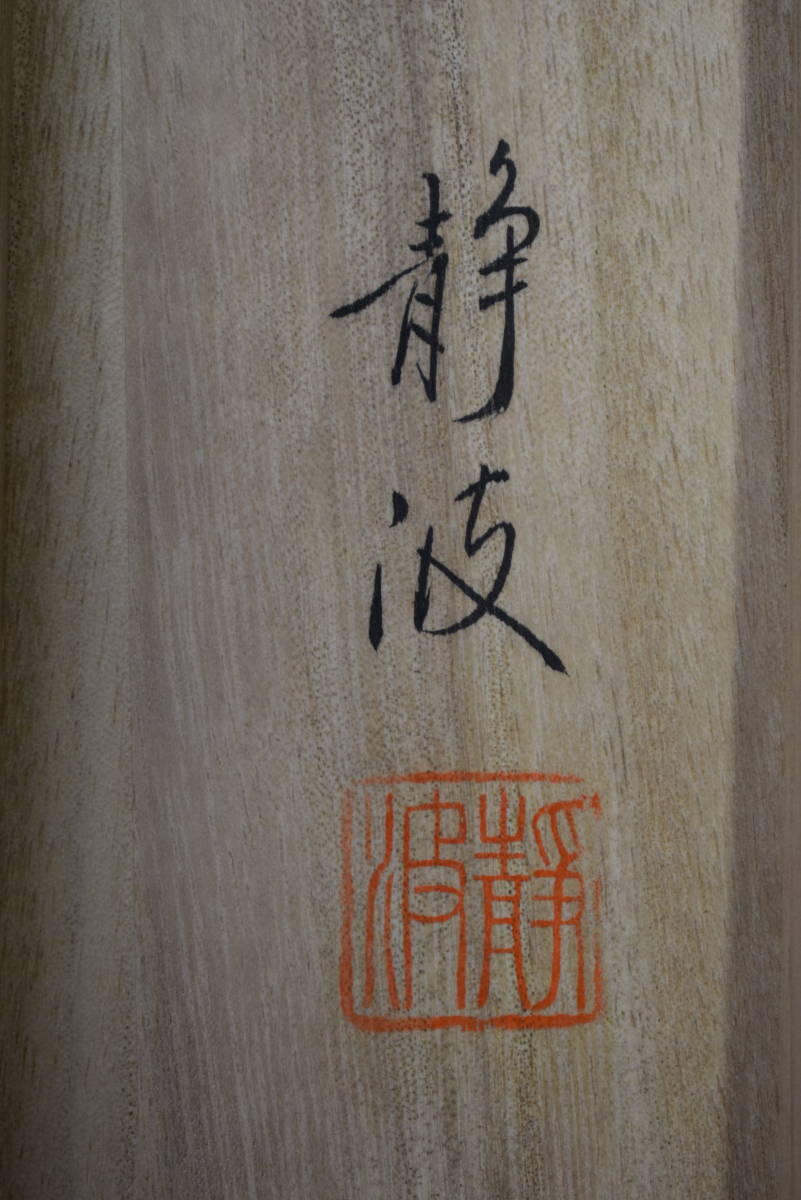 静波
靜波